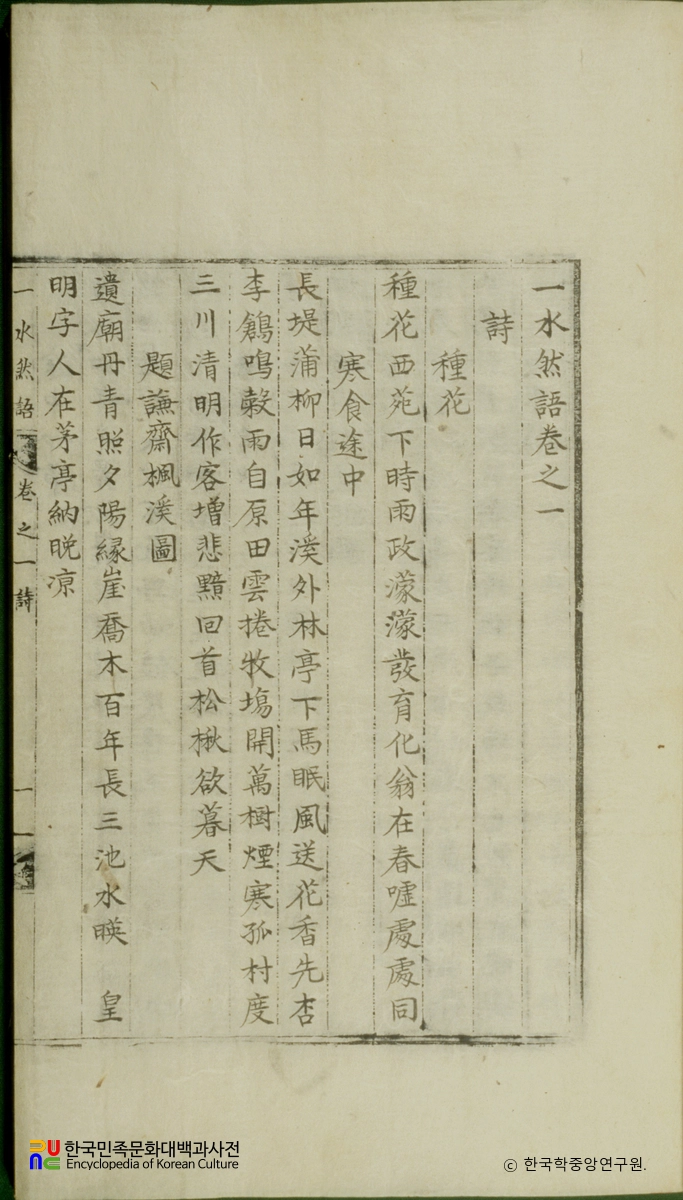 一水然語卷之一
詩
種花
種花西苑下時雨政濛濛發育化翁在春噓處處同
寒食途中
長堤蒲柳日如年溪外林亭下馬眠風送花香先杏
李鶬鳴穀雨自原田雲捲牧塲開萬樹煙寒孤村度
三川清明作客增悲黯回首松楸欲暮天
題謙齋楓溪圖
遺廟丹青照夕陽緣崖喬木百年長三池水暎 皇
明字人在茅亭納晩凉
一水然語 卷之一 詩 一
한국민족문화대백과사전
Encyclopedia of Korean Culture
© 한국학중앙연구원.